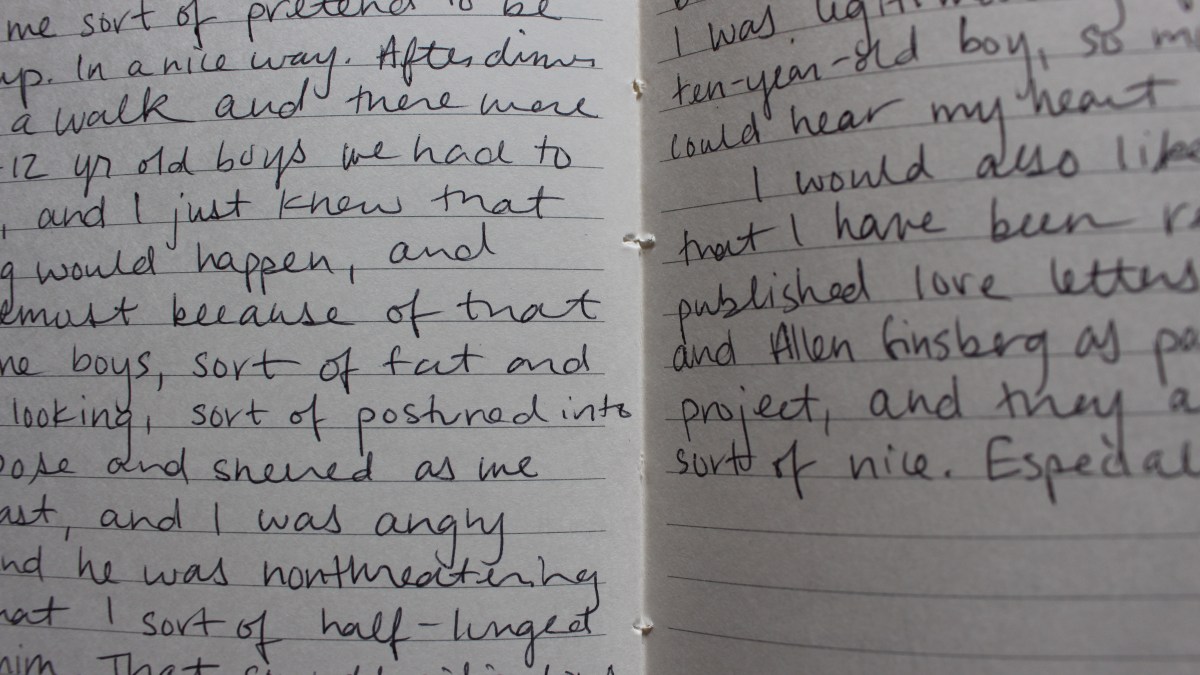 me sort of pretend to be
up. In a nice way. After dinner
a walk and there were
12 yr old boys we had to
, and I just knew that
g would happen, and
almost because of that
ne boys, sort of fat and
looking, sort of postured into
pose and sneered as we
ast, and I was angry
nd he was nonthreatening
hat I sort of half-lunged
him. That
I was
ten-year-old boy, so m
could hear my heart
I would also like
that I have been r
published love letters
and Allen Ginsberg as pa
project, and they a
sort of nice. Especial